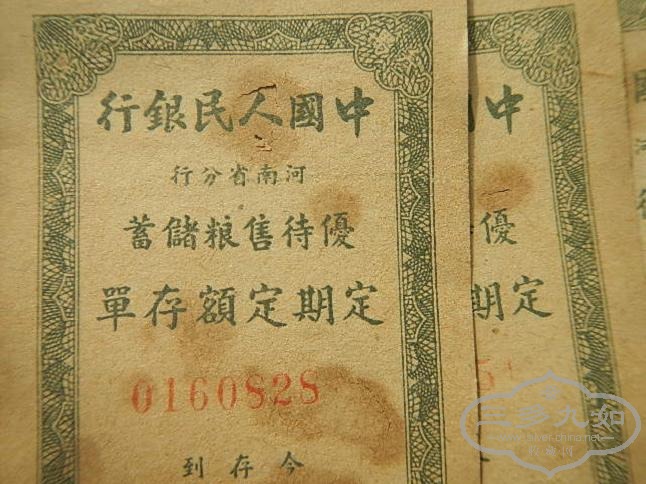 中國人民銀行
河南省分行
優待售粮儲蓄
定期定額存單
0160828
今存到
中
優
定期
5
三多九如